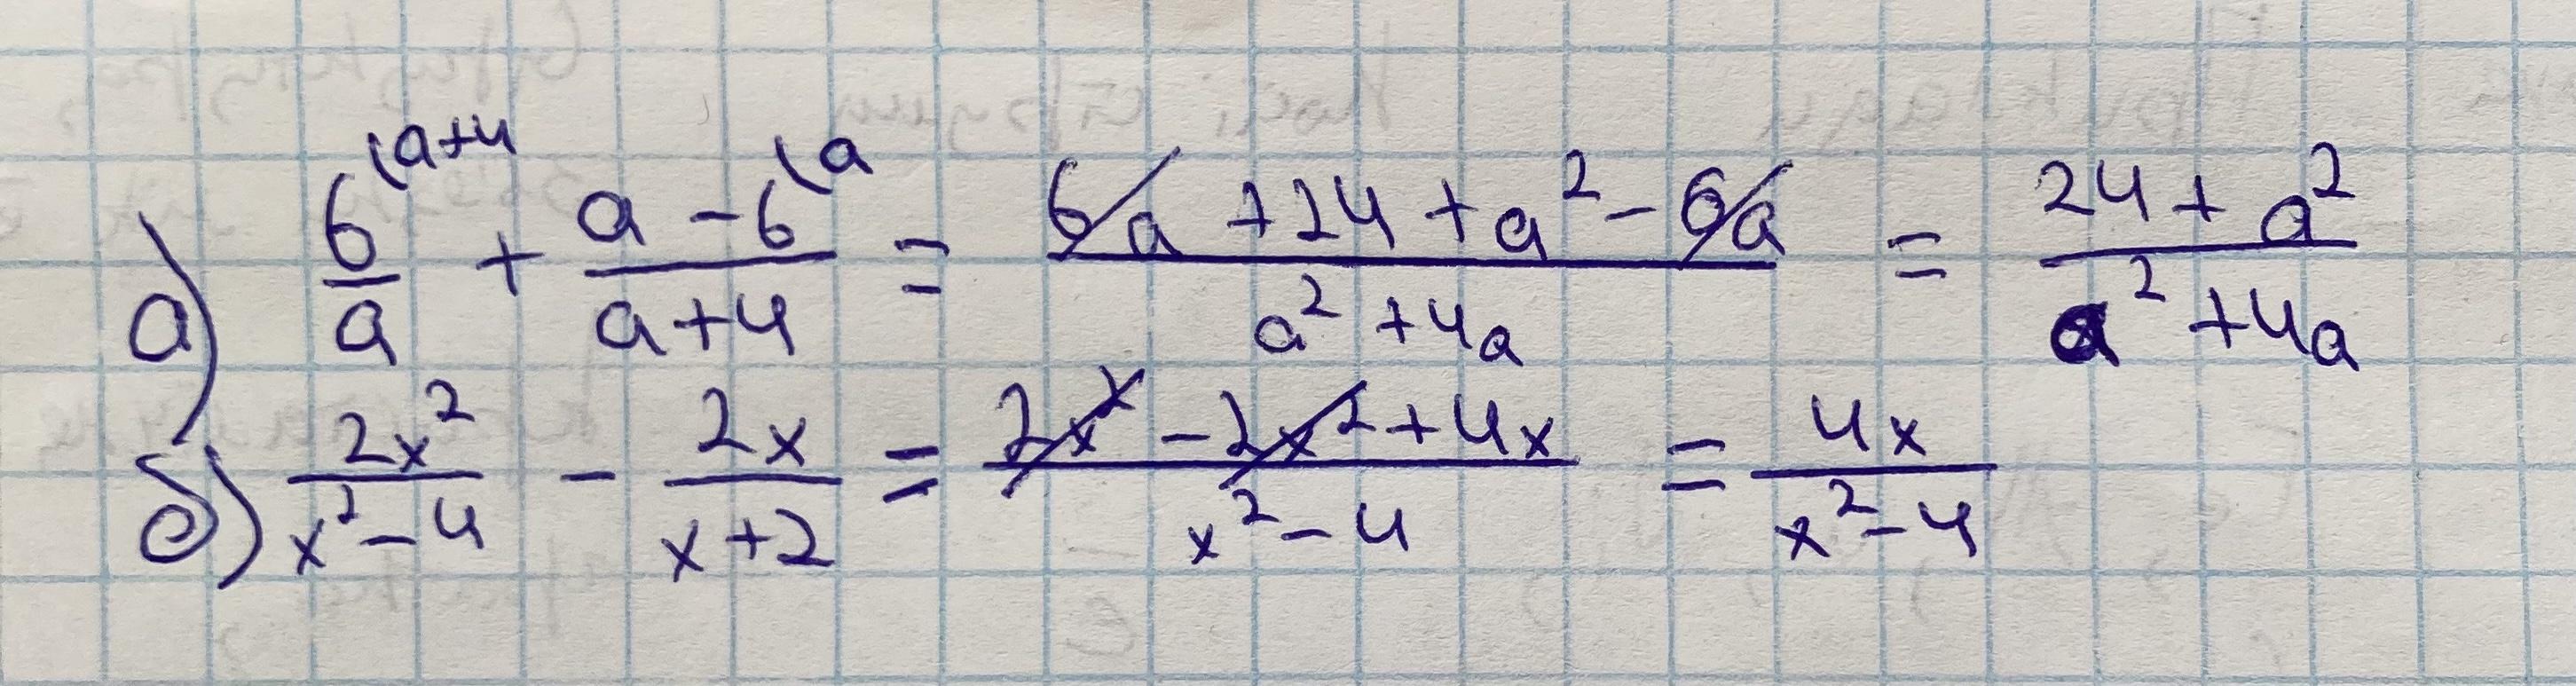 а) 6^(a+4 / a + a - 6^(a / a+4 = 6a + 24 + a² - 6a / a² + 4a = 24 + a² / a² + 4a
б) 2x² / x² - 4 - 2x / x+2 = 2x² - 2x² + 4x / x² - 4 = 4x / x² - 4